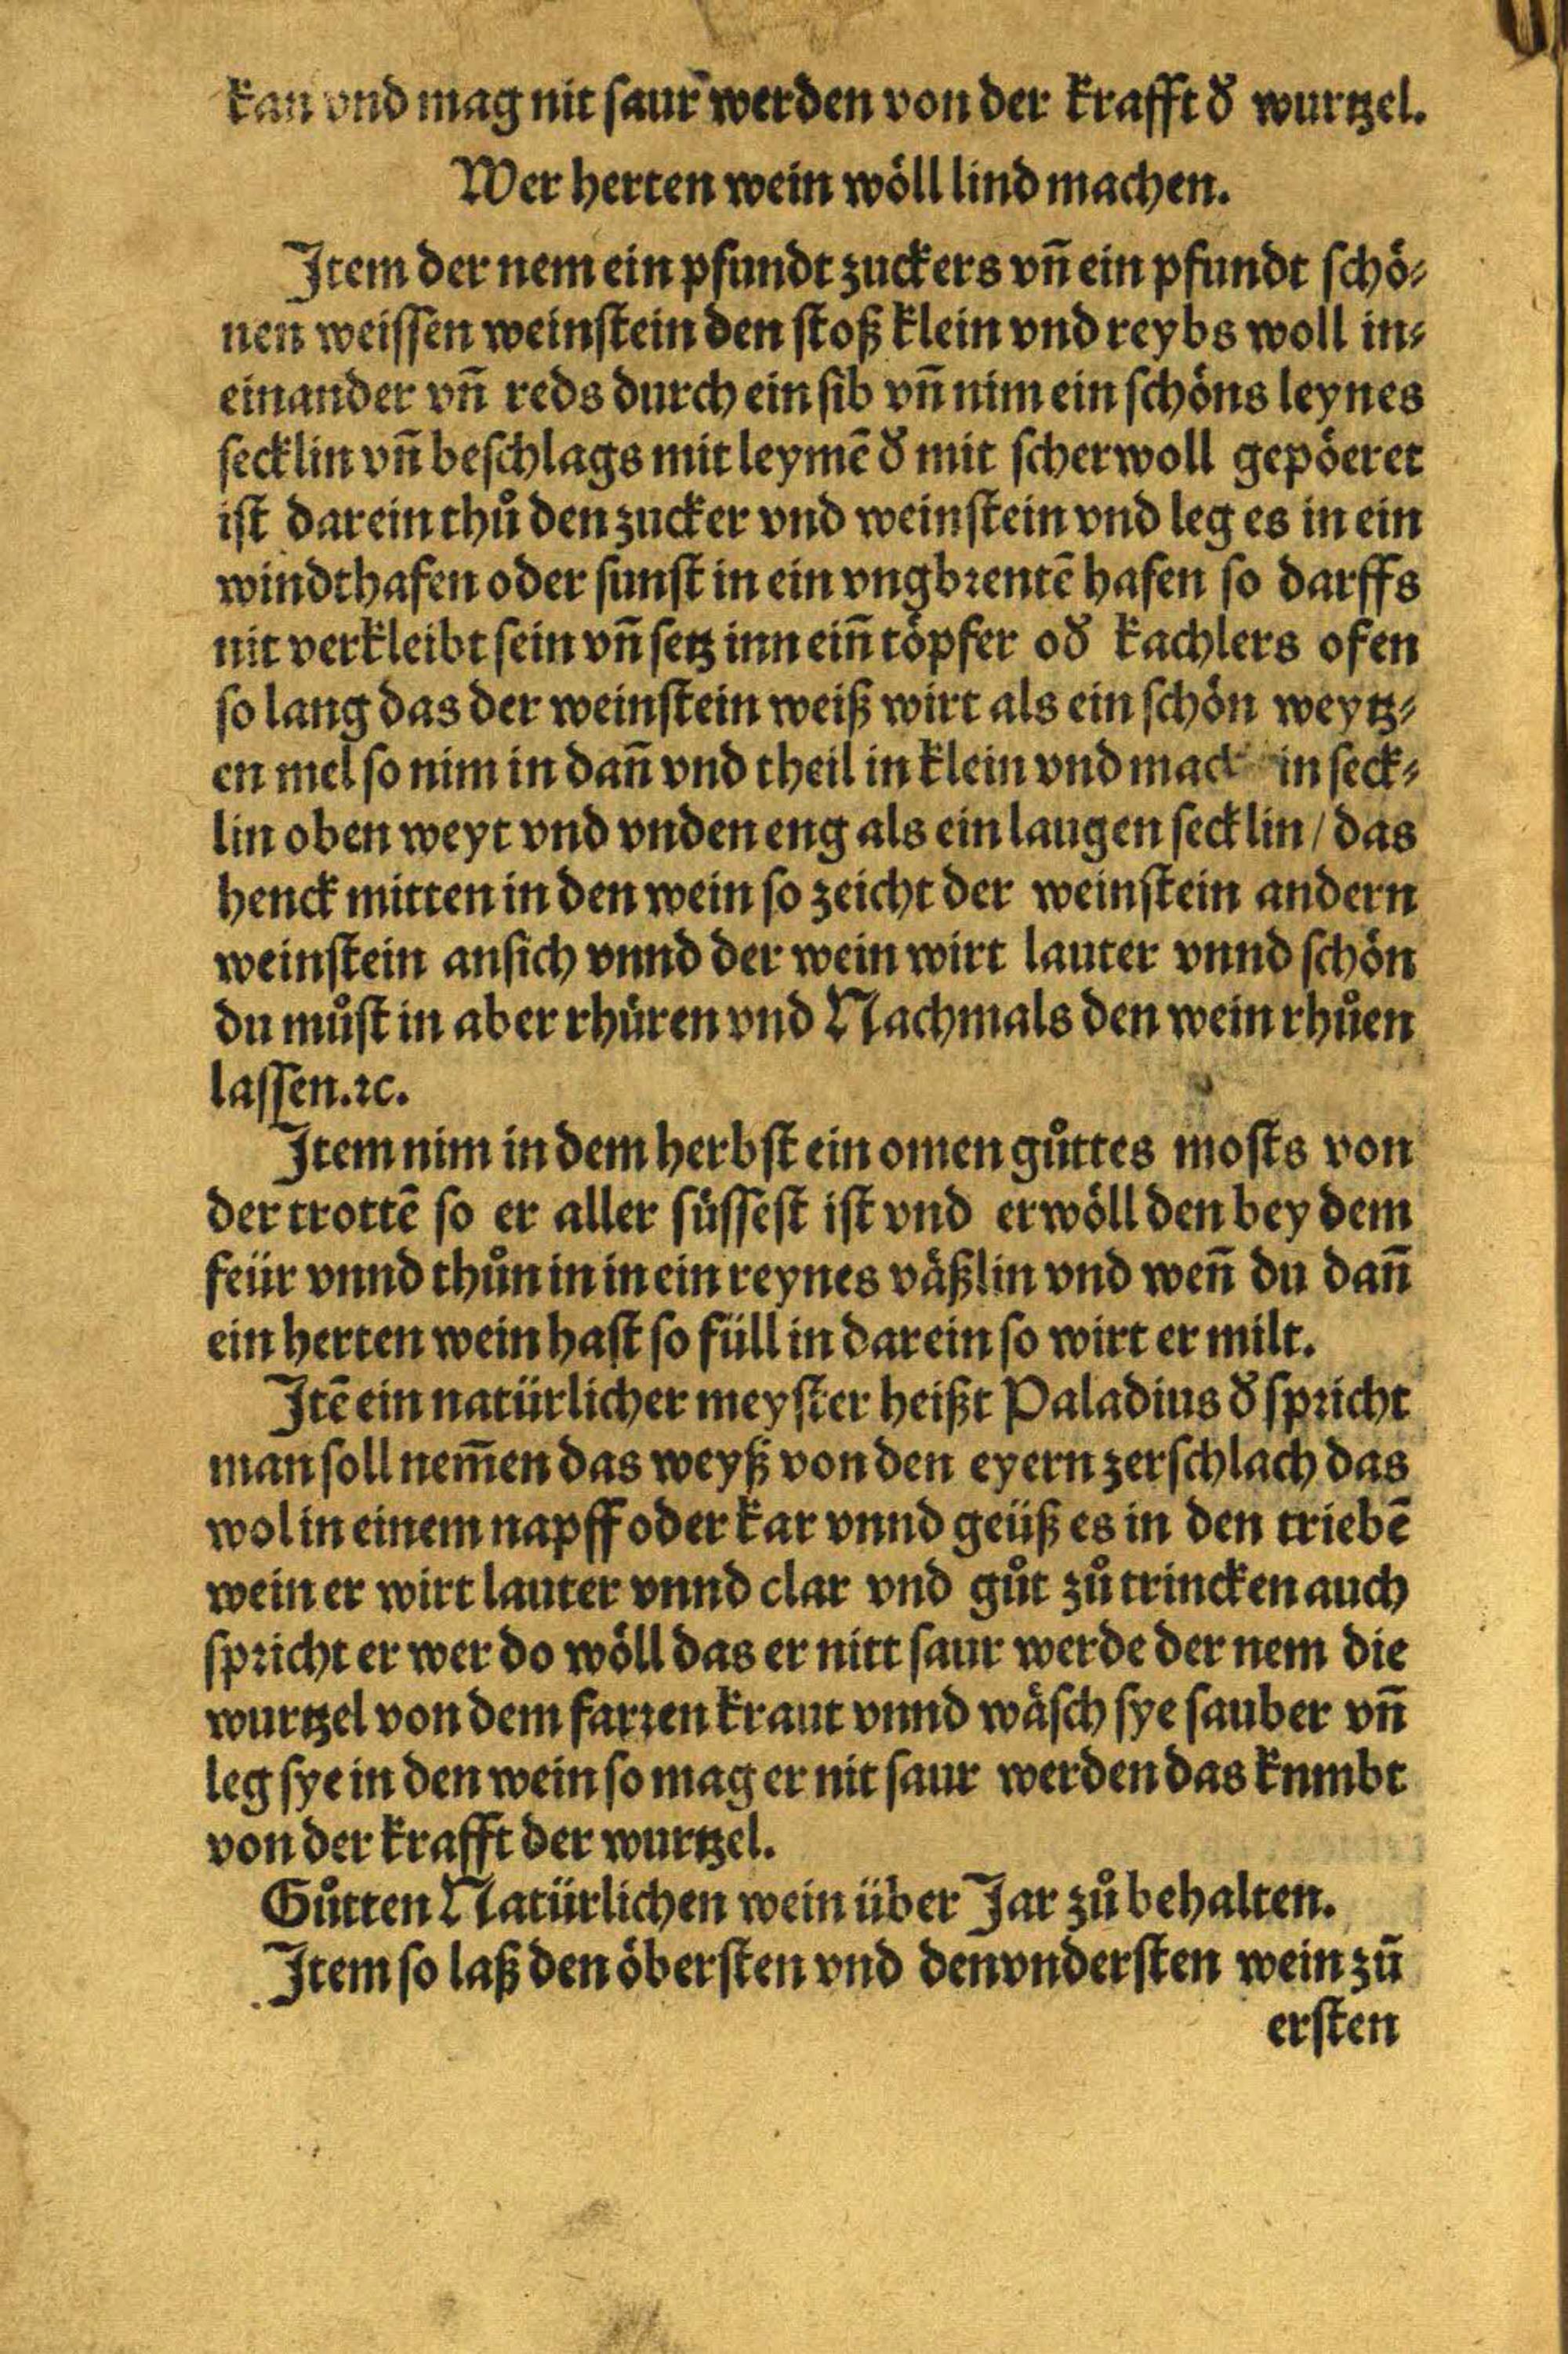 kan vnd mag nit saur werden von der krafft dˀ wurtzel.
Wer herten wein wöll lind machen.
Item der nem ein pfundt zuckers vñ ein pfundt schö⸗
nen weissen weinstein den stoß klein vnd reybs woll in⸗
einander vñ reds durch ein sib vñ nim ein schöns leynes
secklin vñ beschlags mit leymẽ dˀ mit scherwoll gepöeret
ist darein thuͦ den zucker vnd weinstein vnd leg es in ein
windthafen oder sunst in ein vngbrentẽ hafen so darffs
nit verkleibt sein vñ setz inn eiñ töpfer odˀ kachlers ofen
so lang das der weinstein weiß wirt als ein schön weytz⸗
en mel so nim in dañ vnd theil in klein vnd in seck⸗
lin oben weyt vnd vnden eng als ein laugen secklin / das
henck mitten in den wein so zeicht der weinstein andern
weinstein ansich vnnd der wein wirt lauter vnnd schön
du muͦst in aber rhüren vnd Nachmals den wein rhuͦen
lassen.ꝛc.
Item nim in dem herbst ein omen guͦttes mosts von
der trottẽ so er aller süssest ist vnd erwöll den bey dem
feür vnnd thuͦn in in ein reynes väßlin vnd weñ du dañ
ein herten wein hast so füll in darein so wirt er milt.
Itẽ ein natürlicher meyster heißt Paladius dˀ spricht
man soll nem̃en das weyß von den eyern zerschlach das
wol in einem napff oder kar vnnd geüß es in den triebẽ
wein er wirt lauter vnnd clar vnd guͦt zuͦ trincken auch
spricht er wer do wöll das er nitt saur werde der nem die
wurtzel von dem farren kraut vnnd wäsch sye sauber vñ
leg sye in den wein so mag er nit saur werden das knmbt
von der krafft der wurtzel.
Guͦtten Natürlichen wein über Jar zuͦ behalten.
Item so laß den öbersten vnd den vndersten wein zũ
ersten